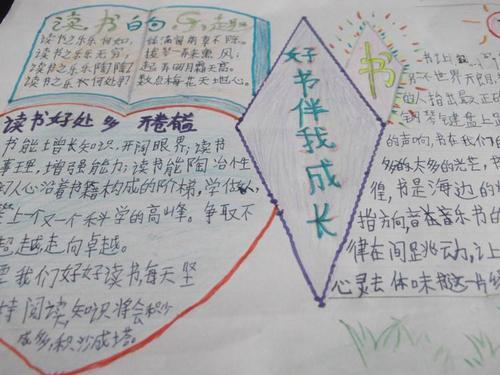 读书白句
读书之乐乐何如，
读书之乐乐无穷，
读书之乐乐陶陶，
读书之乐何处寻？
绿满窗前草不除。
拨琴一弄来熏风；
起弄明月霜天高。
数点梅花天地心。
好书伴我成长
书
读书好处多 开卷有益
书能增长知识，开阔眼界；读书
事理，增强能力；读书能陶冶性
们从心沿着书籍构成的阶梯，学做人，
登上一个又一个科学的高峰。争取不
超越走向卓越。
要我们好好读书每天坚
持阅读，知识将会积少
成多，积沙成塔。
书上
世界开明，
的人指出最正确
钢琴键盘上
的声响，书在我们
多的太多的光芒，
徨，书是海边的
指方向，音在音乐书的
律在间跳动，让
心灵去体味那这一片